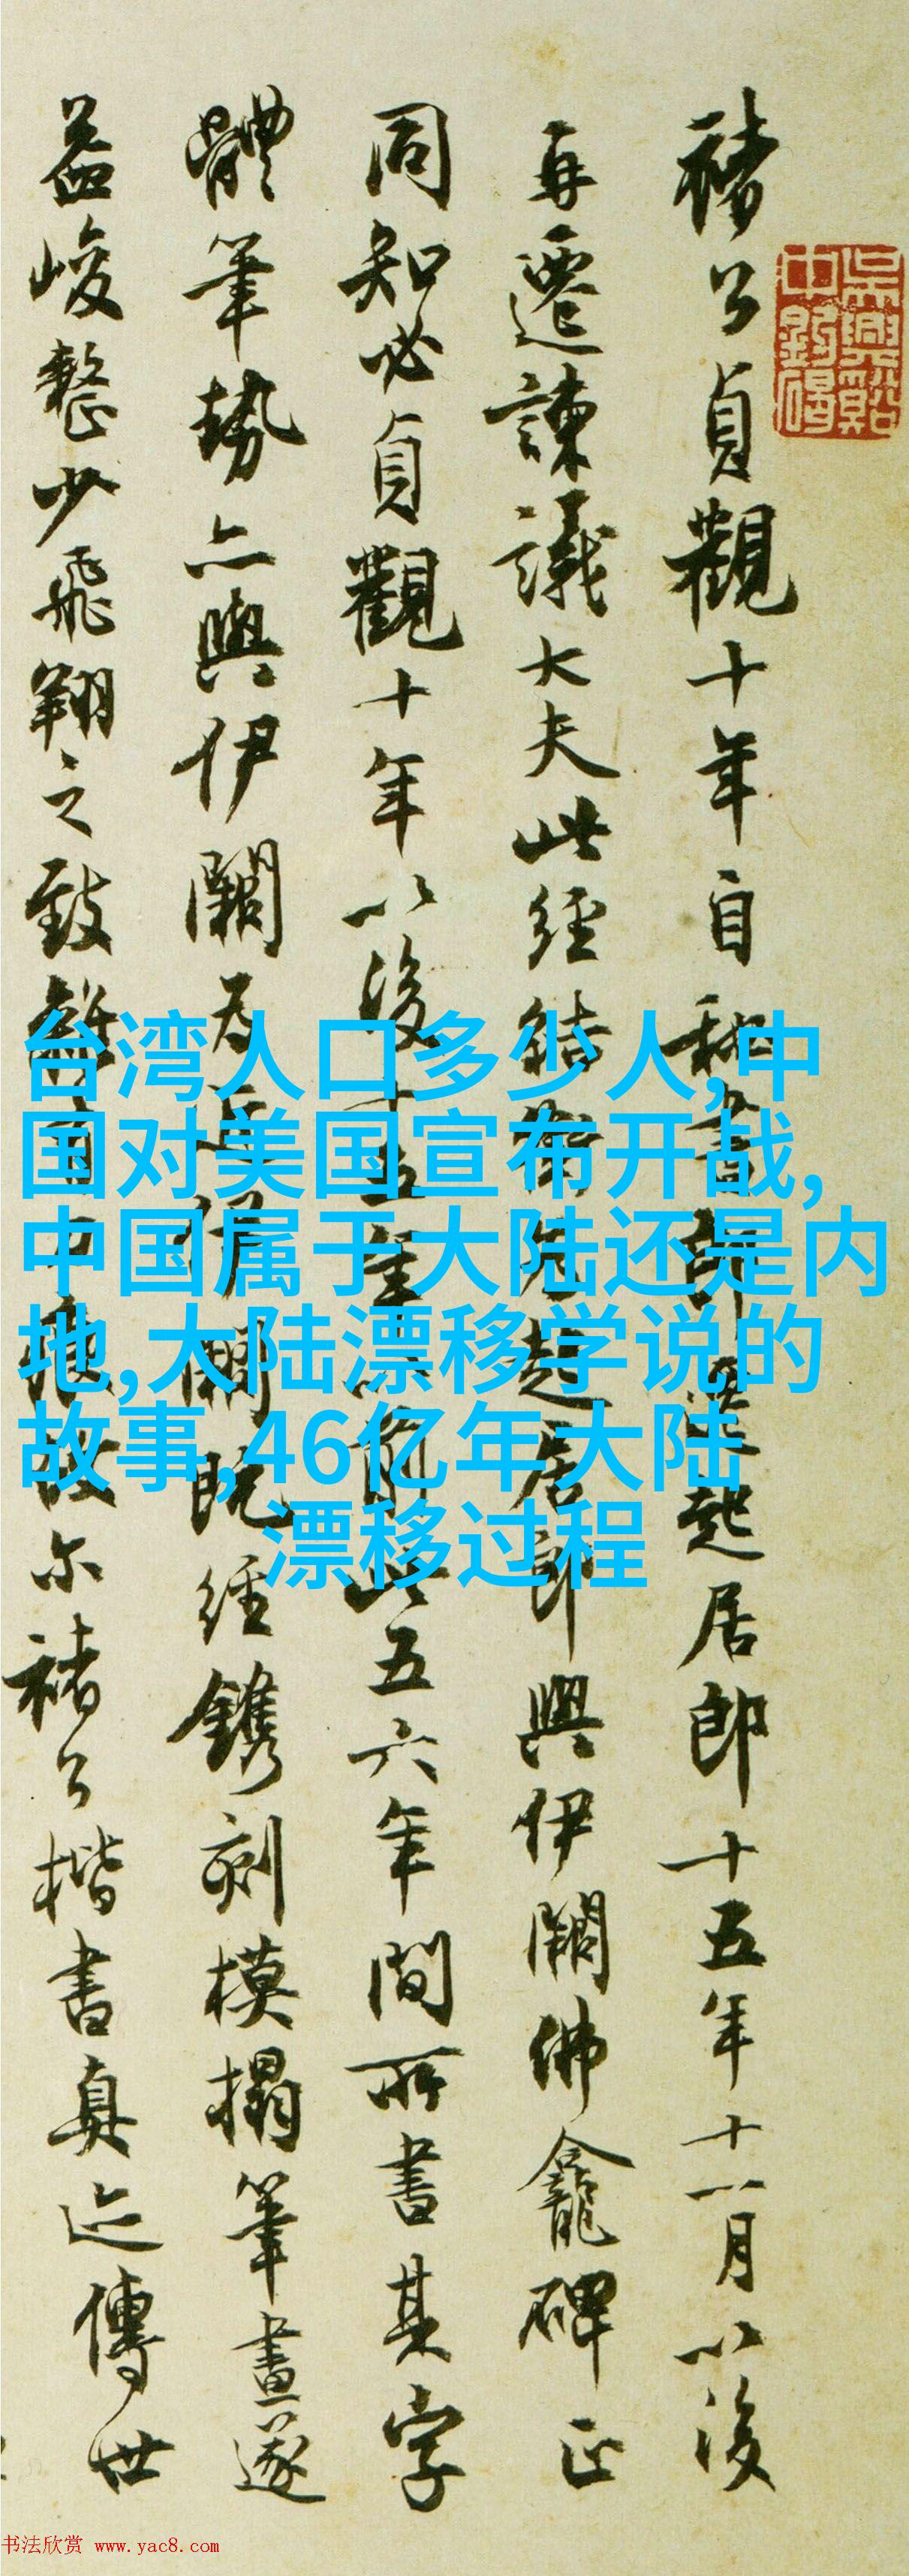 褚公貞觀十年自秘書郎遷起居郎十五年十一月以後
再遷諫議大夫此經結銜先起居郎與伊闕佛龕碑正
同知必貞觀十年以後十五年以前此五六年間所書其字
體筆勢亦與伊闕為近伊闕既經鐫刻模搨筆畫遂
益峻整少飛翔之致
褚公楷書真迹傳世
台湾人口多少人,中
国对美国宣布开战,
中国属于大陆还是内
地,大陆漂移学说的
故事,46亿年大陆
漂移过程
书法欣赏 www.yac8.com